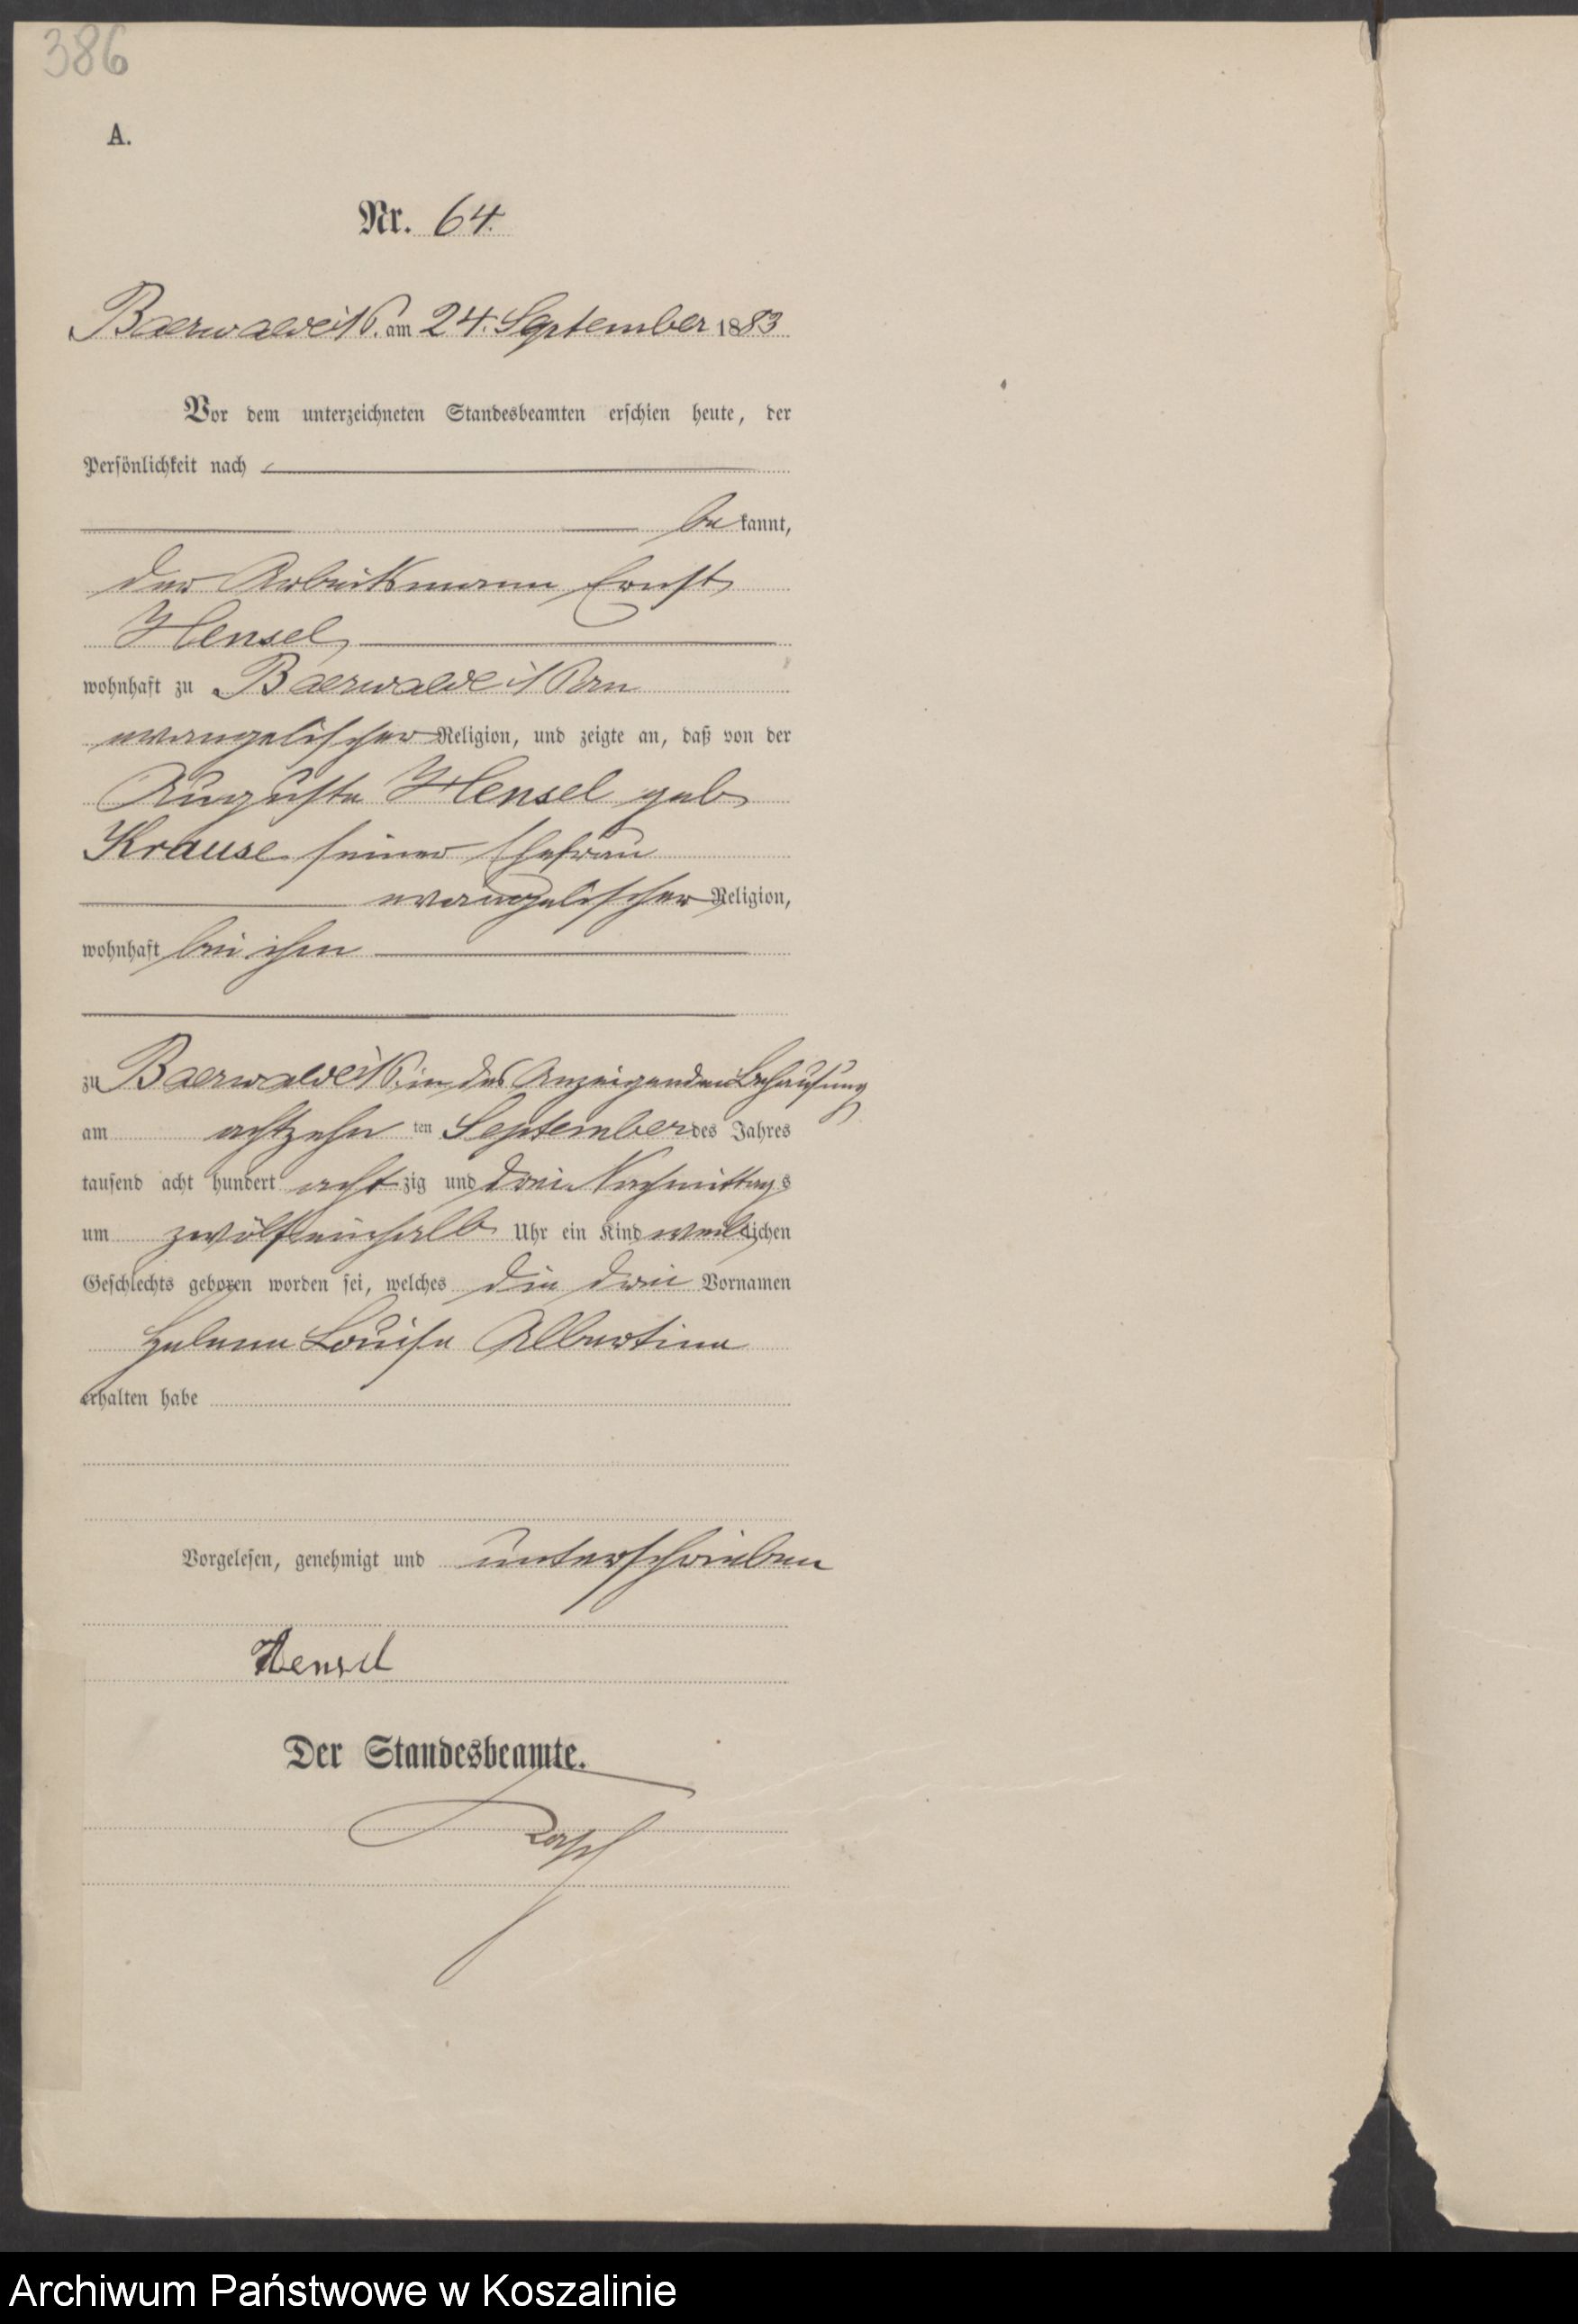 386
A.
Nr. 64.
Baerwalde i/P. am 24. September 1883
Vor dem unterzeichneten Standesbeamten erschien heute, der
Persönlichkeit nach
be kannt,
der Arbeitsmann Ernst
Hensel,
wohnhaft zu Baerwalde i/Pom
evangelischer Religion, und zeigte an, daß von der
Auguste Hensel geb
Krause seiner Ehefrau
evangelischer Religion,
wohnhaft bei ihm
zu Baerwalde i/P. in des Anzeigenden Behausung
am achtzehn ten September des Jahres
tausend acht hundert acht zig und drei Nachmittags
um zwölfeinhalb Uhr ein Kind weiblichen
Geschlechts geboren worden sei, welches die drei Vornamen
Helene Louise Albertine
erhalten habe
Vorgelesen, genehmigt und unterschrieben
Hensel
Der Standesbeamte.
Archiwum Państwowe w Koszalinie